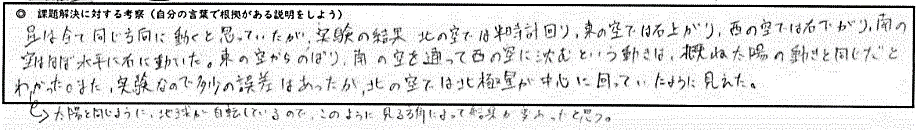 ◎ 課題解決に対する考察（自分の言葉で根拠がある説明をしよう）
星は全て同じ方向に動くと思っていたが、実験の結果 北の空では半時計回り、東の空では右上がり、西の空では右下がり、南の
空はほぼ水平に右に動いていた。東の空からのぼり、南の空を通って西の空に沈むという動きは、概ね太陽の動きと同じだと
わかった。また、実験なので多少の誤差はあったが、北の空では北極星が中心に回っていたように見えた。
↳太陽と同じように、地球が自転しているので、このように見る方角によって結果が変わったと思う。